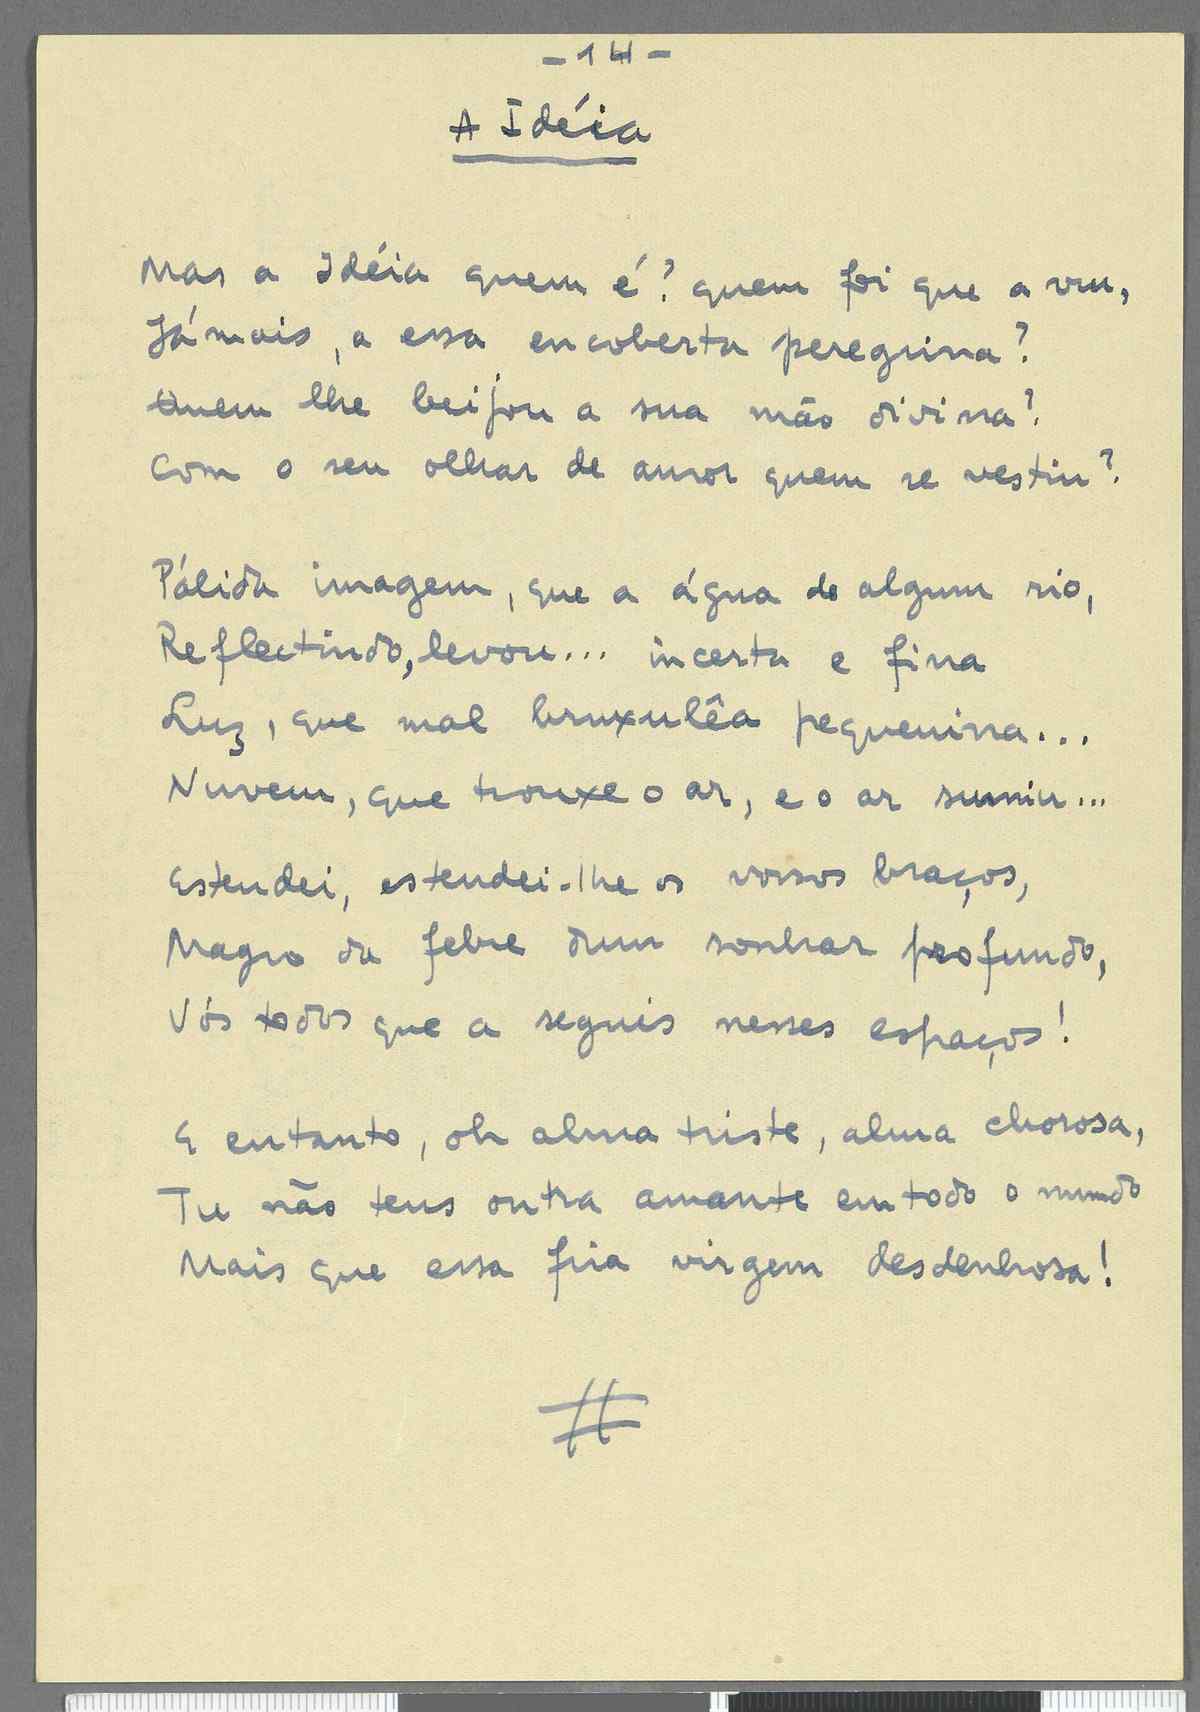 - 14 -
A Idéia
Mas a Idéia quem é? quem foi que a viu,
Jámais, a essa encoberta peregrina?
Quem lhe beijou a sua mão divina?
Com o seu olhar de amor quem se vestiu?
Pálida imagem, que a água de algum rio,
Reflectindo, levou... incerta e fina
Luz, que mal bruxulêa pequenina...
Nuvem, que trouxe o ar, e o ar sumiu...
Estendei, estendei-lhe os vossos braços,
Magro da febre dum sonhar profundo,
Vós todos que a seguis nesses espaços!
E entanto, oh alma triste, alma chorosa,
Tu não tens outra amante em todo o mundo
Mais que essa fria virgem desdenhosa!
#